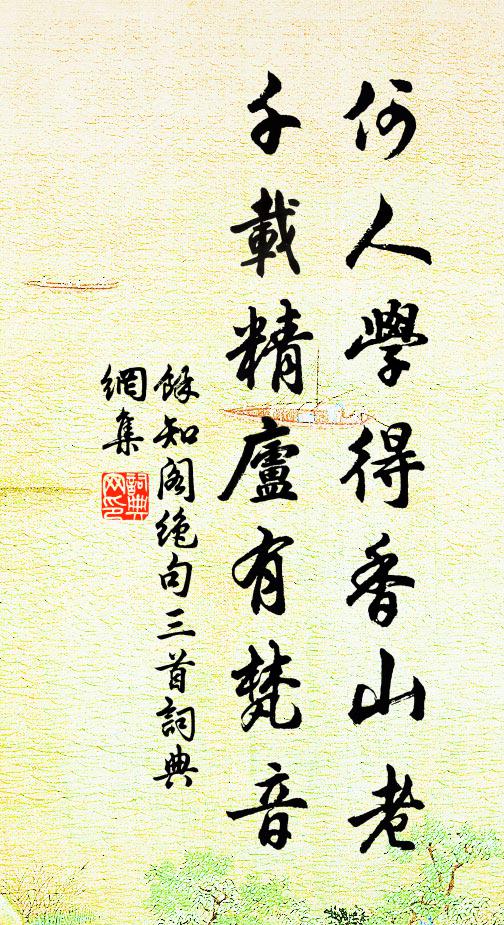 何人學得香山老
千載精廬有梵音
餘知阁绝句三首詞典
網集
詞典
网印